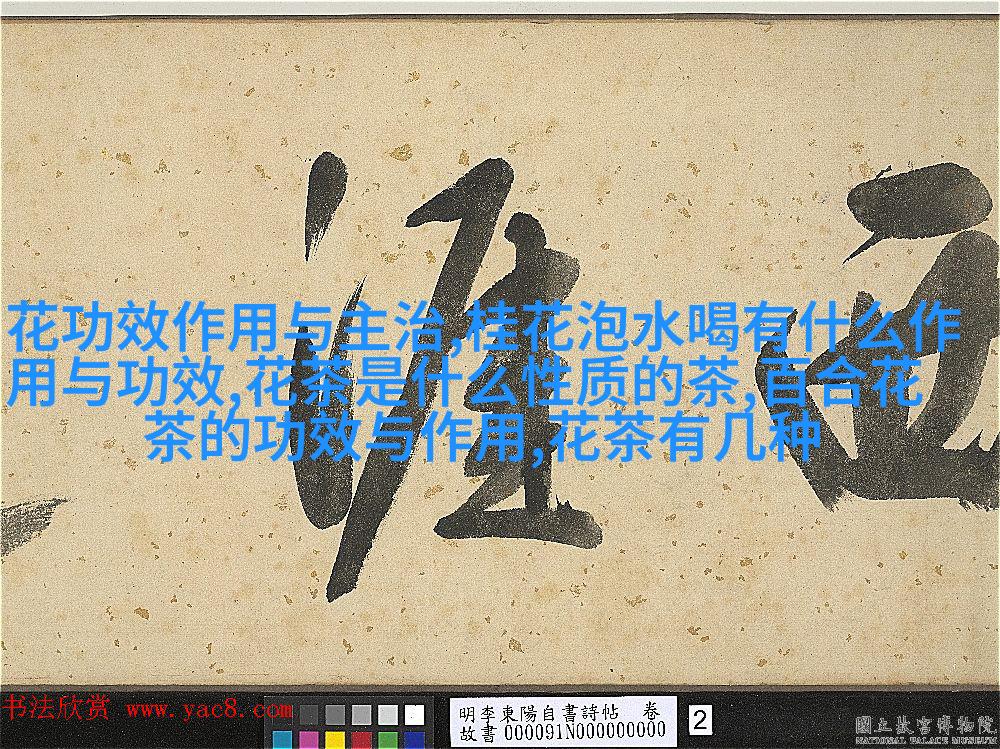 西涯
花功效作用与主治,桂花泡水喝有什么作
用与功效,花茶是什么性质的茶,百合花
茶的功效与作用,花茶有几种
书法欣赏 www.yac8.com
明李東陽自書詩帖 卷
故書 000091N000000000
2
國立故宮博物院
NATIONAL PALACE MUSEUM